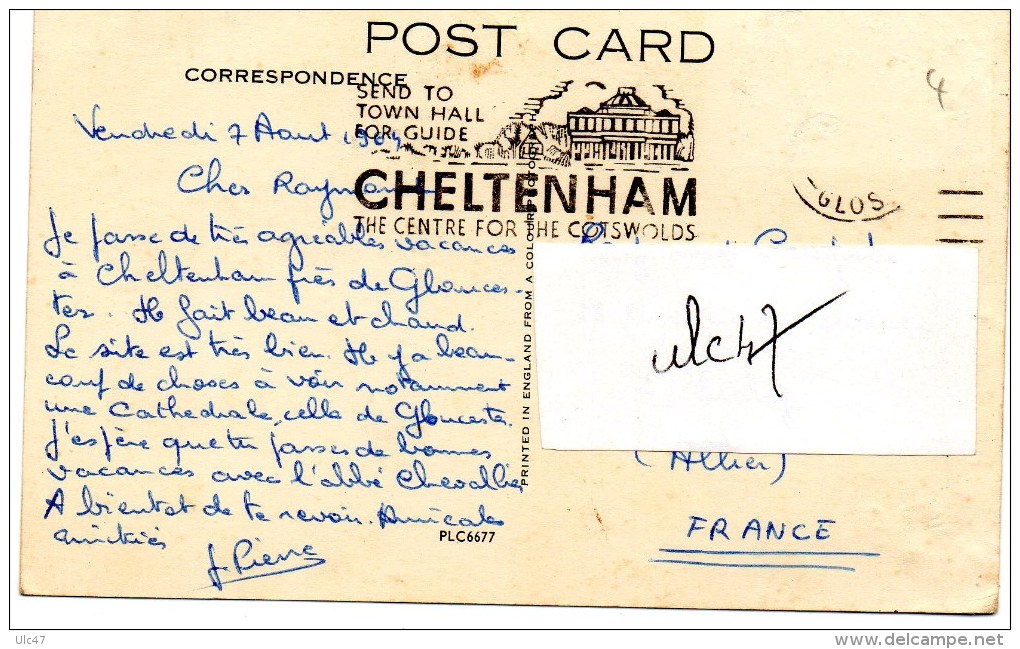 POST CARD
CORRESPONDENCE
SEND TO
TOWN HALL
FOR GUIDE
CHELTENHAM
THE CENTRE FOR THE COTSWOLDS
GLOS
4
Vendredi 7 Aout 1964
Cher Raymond
Je passe de très agréables vacances
à Cheltenham près de Glouces-
ter. Il fait beau et chaud.
Le site est très bien. Il y a beau-
coup de choses à voir notamment
une Cathedrale, celle de Gloucester.
J'espère que tu passes de bonnes
vacances avec l'abbé Chevallier
A bientot de te revoir. Amicales
amitiés
J. Pierre
PLC6677
PRINTED IN ENGLAND FROM A COLOUR PHOTOGRAPH
ulc47
(Allier)
FRANCE
Ulc47
delcampe.net